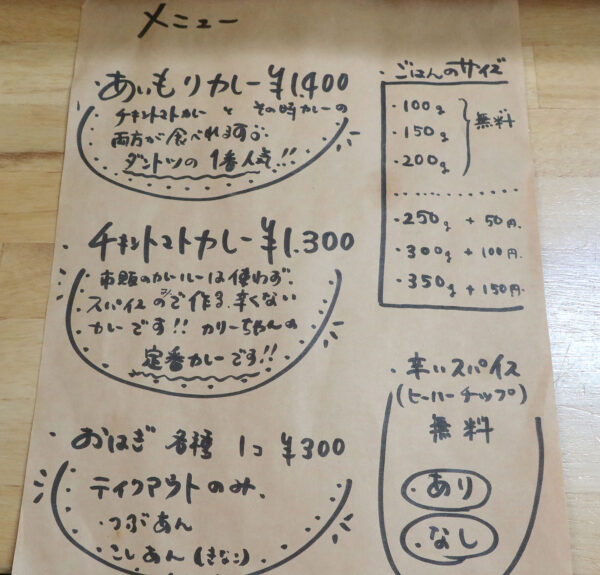 メニュー
・あいもりカレー ¥1,400
チキントマトカレー と その時カレーの
両方が食べれます♡
ダントツの1番人気!!
・チキントマトカレー ¥1,300
市販のカレールーは使わず、
スパイスのみで作る、辛くない
カレーです!! カリーちゃんの
定番カレーです!!
・おはぎ 各種 1コ ¥300
テイクアウトのみ、
・つぶあん
・こしあん(きなこ)
・ごはんのサイズ
・100g
・150g
・200g
無料
・250g +50円.
・300g +100円.
・350g +150円.
・辛いスパイス
(ヒーハーチップ)
無料
・あり
・なし